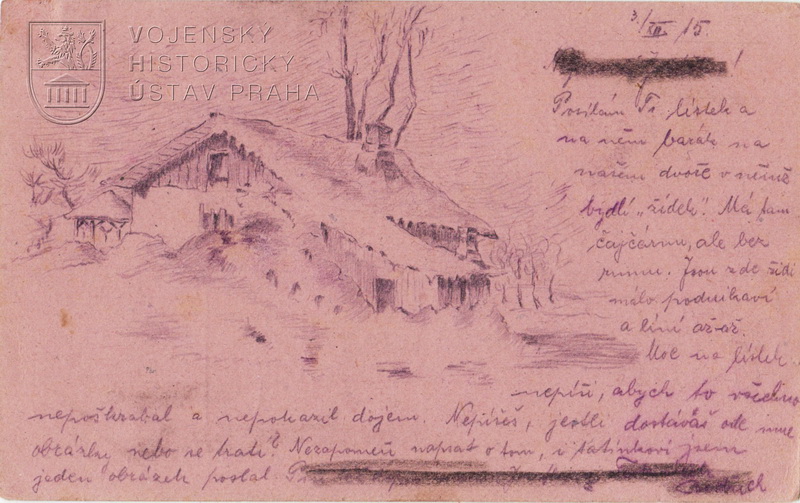 VOJENSKÝ
HISTORICKÝ
ÚSTAV PRAHA
3./XII. 15.
Posílám Ti lístek a
na něm barák na
našem dvoře v němž
bydlí „židek“. Má tam
čajčárnu, ale bez
rumu. Jsou zde židi
málo podnikaví
a líní až-až.
Moc na lístek
nepíši, abych to všechno
nepoškrabal a nepokazil dojem. Nepíšeš, jestli dostáváš ode mne
obrázky nebo se tratí? Nezapomeň napsat o tom, i tatínkovi jsem
jeden obrázek poslal